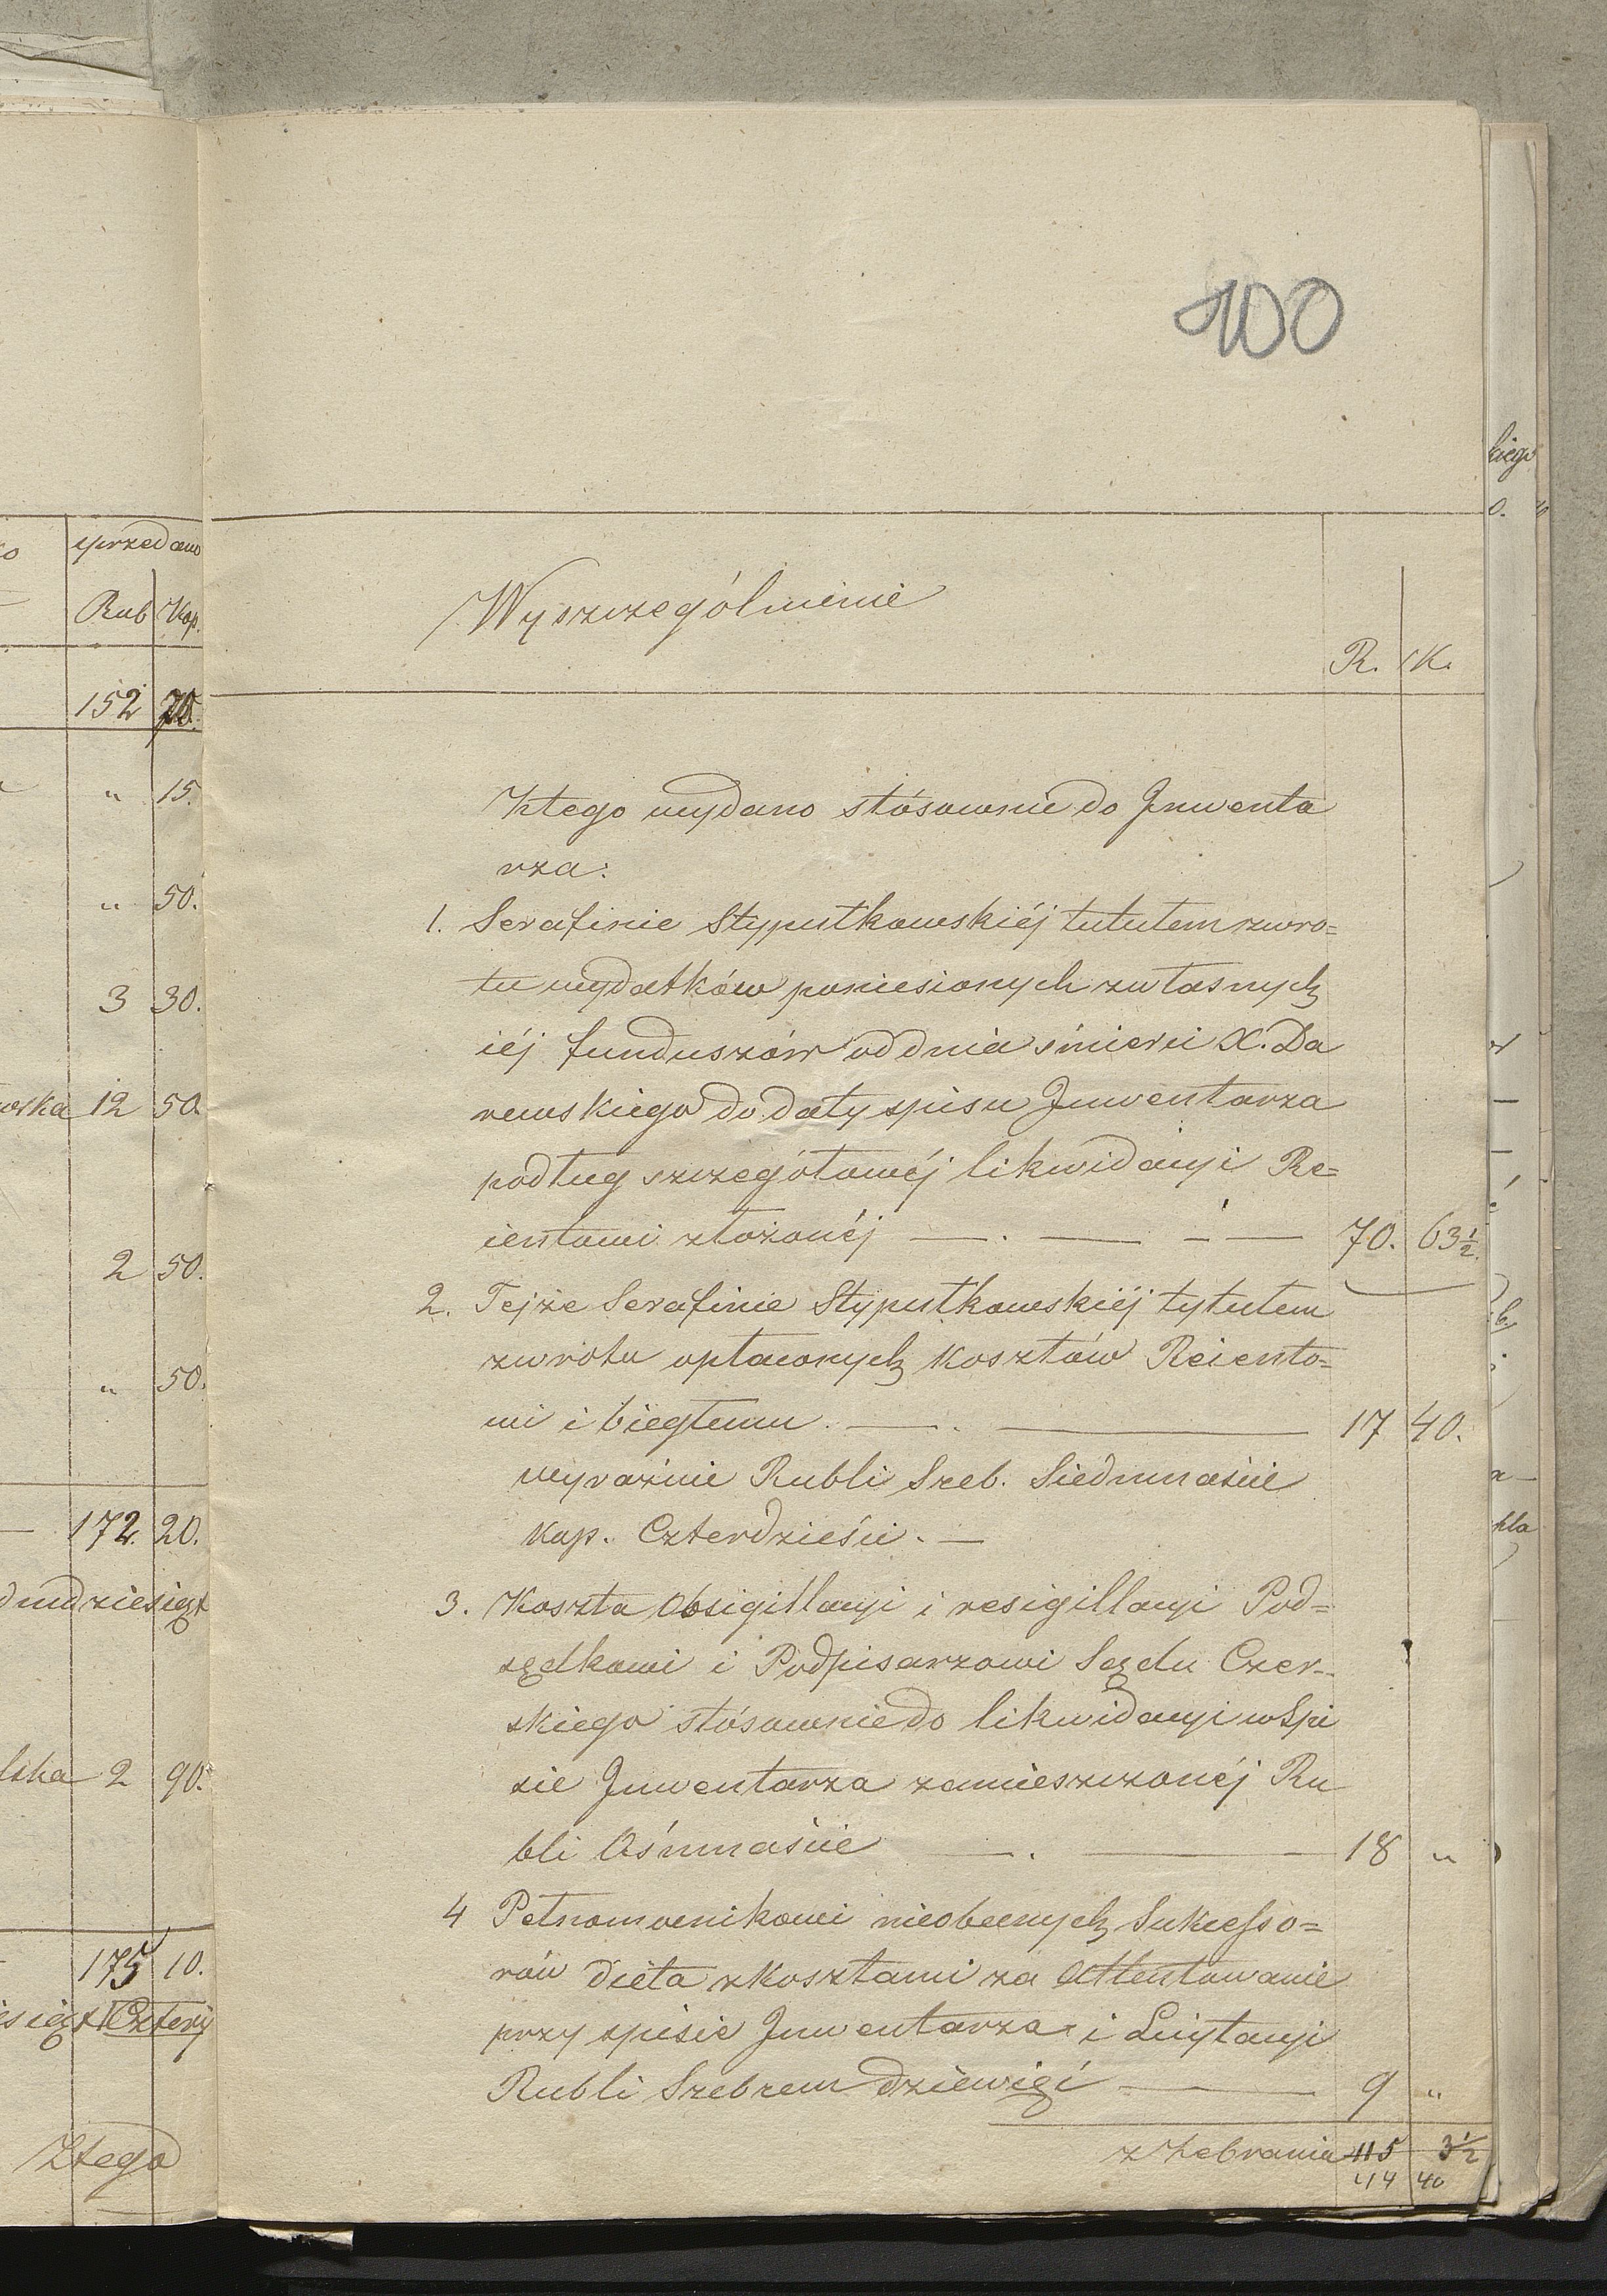 100
przedano
Rub Kop.
152 70.
" 15.
" 50.
3 30.
wska 12 50
2 50.
" 50.
172. 20.
dmdziesiąt
lska 2 90.
175 10.
iesiąt Cztery
Ztego
Wyszczególnienie
R. K.
Ztego wydano stósownie do Jnwenta
rza:
1. Serafinie Stypułkowskiéj tutułem zwro=
tu wydatków poniesionych zwłasnych
iéj funduszów od dnia śmierci X. Da
rewskiego do daty spisu Jnwentarza
podług szczegółowéj likwidacyi Re=
ientowi złożonéj — . — — — 70. 63½.
2. Tejże Serafinie Stypułkowskiéj tytułem
zwrotu opłaconych kosztów Reiento=
wi i biegłemu. — . — 17 40.
wyraźnie Rubli Sreb. Siedmnaście
Kop. Czterdzieści. —
3. Koszta Obsigillacyi i resigillacyi Pod=
sędkowi i Podpisarzowi Sądu Czer=
skiego stósownie do likwidacyi w Spi
sie Jnwentarza zamieszczonéj Ru
bli Ośmnaście — . — 18 "
4 Pełnomocnikowi nieobecnych Sukcesso=
rów dieta z kosztami za Attentowanie
przy spisie Jnwentarza i Licytacyi
Rubli Srebrem dziewięć — 9 "
z Zebrania 115 3½
114 40
kiego